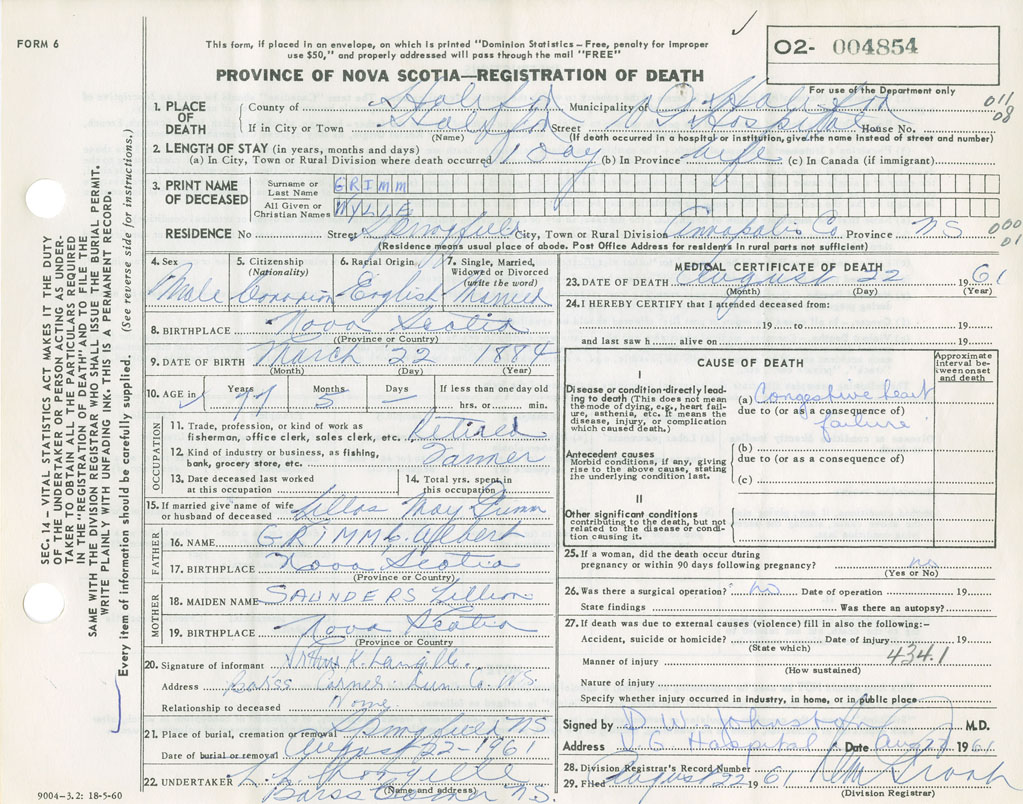 FORM 6
This form, if placed in an envelope, on which is printed "Dominion Statistics – Free, penalty for improper
use $50," and properly addressed will pass through the mail "FREE"
O2- 004854
For use of the Department only
PROVINCE OF NOVA SCOTIA—REGISTRATION OF DEATH
1. PLACE OF DEATH
County of Halifax Municipality of
011
08
If in City or Town Halifax Street V G Hospital House No.
(Name) (If death occurred in a hospital or institution, give the name instead of street and number)
2. LENGTH OF STAY (in years, months and days)
(a) In City, Town or Rural Division where death occurred 1 day (b) In Province life (c) In Canada (if immigrant)
3. PRINT NAME OF DECEASED
Surname or Last Name GRIMM
All Given or Christian Names WYLIE
RESIDENCE No Street Springfield City, Town or Rural Division Annapolis Co Province NS
000
01
(Residence means usual place of abode. Post Office Address for residents in rural parts not sufficient)
4. Sex Male
5. Citizenship (Nationality) Canadian
6. Racial Origin English
7. Single, Married, Widowed or Divorced (write the word) Married
8. BIRTHPLACE Nova Scotia
(Province or Country)
9. DATE OF BIRTH March 22 1884
(Month) (Day) (Year)
10. AGE in Years 77 Months 5 Days – If less than one day old hrs. or min.
OCCUPATION
11. Trade, profession, or kind of work as
fisherman, office clerk, sales clerk, etc. Retired
12. Kind of industry or business, as fishing,
bank, grocery store, etc.
13. Date deceased last worked at this occupation
14. Total yrs. spent in this occupation
15. If married give name of wife
or husband of deceased May Dunn
FATHER
16. NAME GRIMM Albert
17. BIRTHPLACE Nova Scotia
(Province or Country)
MOTHER
18. MAIDEN NAME SAUNDERS Lillian
19. BIRTHPLACE Nova Scotia
(Province or Country
20. Signature of informant K. Langille
Address Barss Corner Lun Co. N.S.
Relationship to deceased None
21. Place of burial, cremation or removal Springfield NS
Date of burial or removal August 22 - 1961
22. UNDERTAKER
(Name and address)
Barss Corner N.S.
9004-3.2: 18-5-60
MEDICAL CERTIFICATE OF DEATH
23. DATE OF DEATH August 22 1961
(Month) (Day) (Year)
24. I HEREBY CERTIFY that I attended deceased from:
19 to 19
and last saw h alive on 19
CAUSE OF DEATH
Approximate interval between onset and death
I
Disease or condition directly lead-
ing to death (This does not mean
the mode of dying, e.g., heart fail-
ure, asthenia, etc. It means the
disease, injury, or complication
which caused death.)
(a) Congestive heart
due to (or as a consequence of)
failure
Antecedent causes
Morbid conditions, if any, giving
rise to the above cause, stating
the underlying condition last.
(b)
due to (or as a consequence of)
(c)
II
Other significant conditions
contributing to the death, but not
related to the disease or condi-
tion causing it.
25. If a woman, did the death occur during
pregnancy or within 90 days following pregnancy? no
(Yes or No)
26. Was there a surgical operation? no Date of operation 19
State findings Was there an autopsy?
27. If death was due to external causes (violence) fill in also the following:–
Accident, suicide or homicide? Date of injury 19
(State which)
434.1
Manner of injury
(How sustained)
Nature of injury
Specify whether injury occurred in industry, in home, or in public place
Signed by D W Johnston M.D.
Address V G Hospital Date Aug 22 1961
28. Division Registrar's Record Number
29. Filed August 22 1961
(Division Registrar)
SEC. 14 – VITAL STATISTICS ACT MAKES IT THE DUTY
OF THE UNDERTAKER OF PERSON ACTING AS UNDER-
TAKER TO OBTAIN ALL THE PARTICULARS REQUIRED
IN THE "REGISTRATION OF DEATH" AND TO FILE THE
SAME WITH THE DIVISION REGISTRAR WHO SHALL ISSUE THE BURIAL PERMIT.
WRITE PLAINLY WITH UNFADING INK. THIS IS A PERMANENT RECORD.
Every item of information should be carefully supplied. (See reverse side for instructions.)